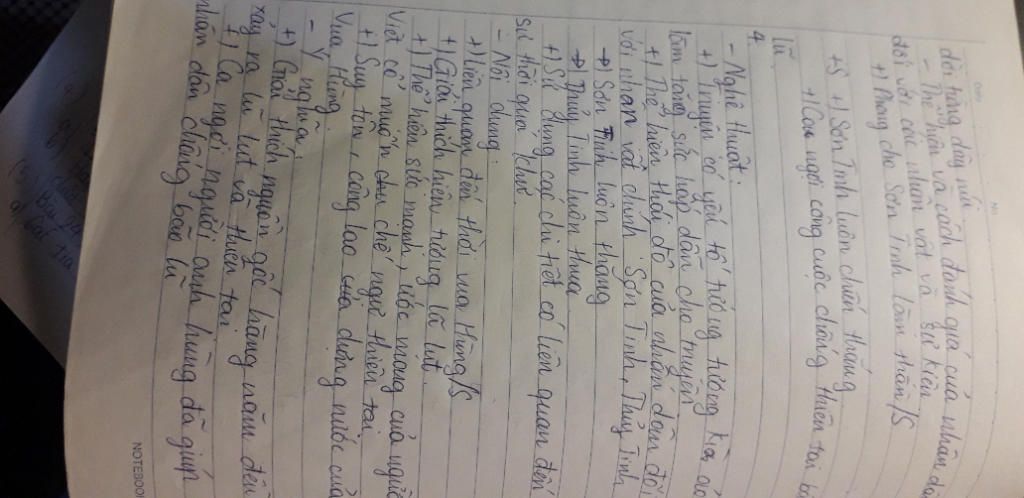 đời từng dãy núi
- Thể hiện và cách đánh giá của nhân d
đối với các nhân vật và sự kiện
+) Phong cho Sơn Tinh làm thần /S
+S +) Sơn Tinh luôn chiến thắng
+) Ca ngợi công cuộc chống thiên tai bã
lũ
4.
- Nghệ thuật.
+) Truyện có yếu tố tưởng tượng kìa ảo
làm tăng sức hấp dẫn cho truyện
+) Thể hiện thái độ của nhân dân đối
với nhân vật chính Sơn Tinh, Thủy Tinh
→ Sơn Tinh luôn thắng
→ Thủy Tinh luôn thua
+) Sử dụng các chi tiết có liên quan đến
sử thời quá khứ.
- Nội dung:
+) Liên quan đến thời vua Hùng /S
+) Giải thích hiện tượng lũ lụt.
+) Thể hiện sức mạnh, ước mong của người
Việt cổ muốn chế ngự thiên tai
+) Suy tôn, công lao dựng nước của
Vua Hùng.
- Ý nghĩa:
+) Giải thích nguồn gốc hàng năm đều
xảy ra lũ lụt và thiên tai
+) Ca ngợi người anh hùng đã giúp
nhân dân chống bão lũ
NOTEBOOK